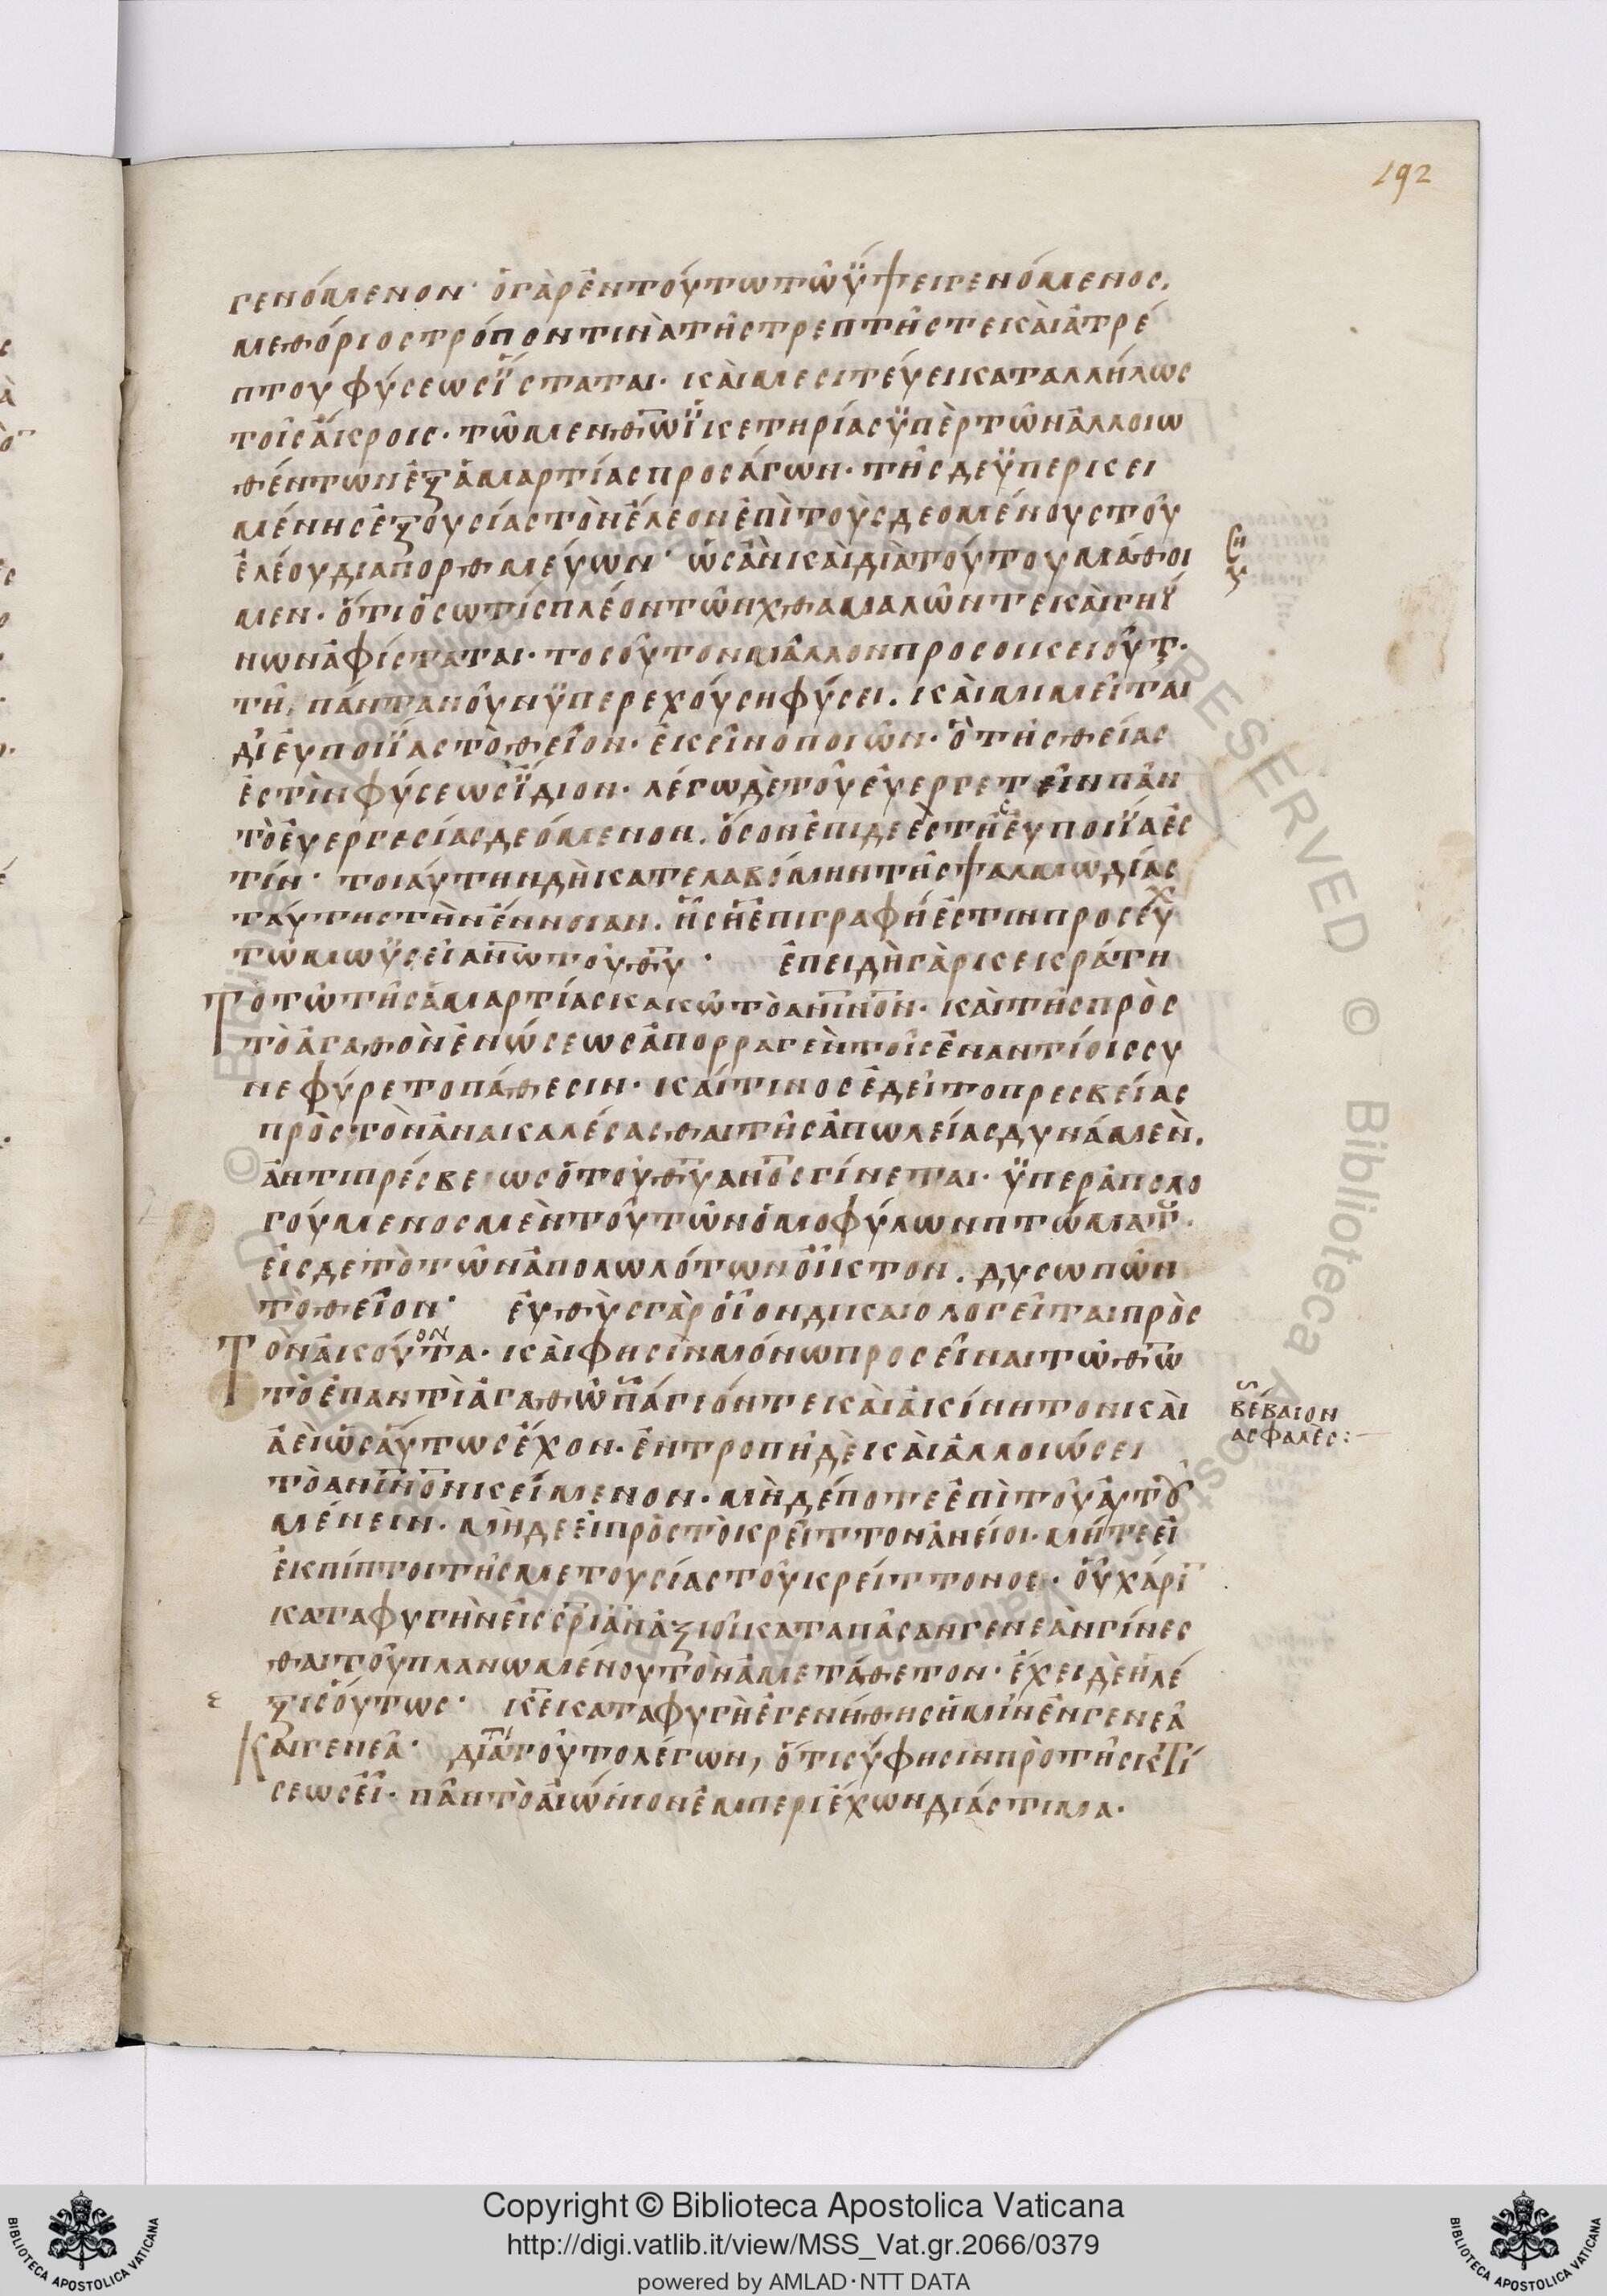 192
γενόμενον· ὁ γὰρ ἐν τούτω τῶ ὕψει γενόμενος,
μεθόριος τρόπον τινὰ τῆς τρεπτῆς τε καὶ ἀτρέ
πτου φύσεως ἵσταται· καὶ μεσιτεύει καταλλήλως
τοῖς ἄκροις· τῶ μεν θ̅ω̅ ἱκετηρίας ὑπὲρ τῶν ἀλλοιω
θέντων ἐξ ἁμαρτίας προσάγων· τῆς δε ὑπερκει
μένης ἐξουσίας τὸν ἔλεον ἐπὶ τοὺς δεομένους τοῦ
ἐλέου διαπορθμεύων· ὡς ἂν καὶ διὰ τούτου μάθοι
μεν· ὅτι ὅσω τίς πλέον τῶν χθαμαλῶν τε καὶ γηΐ
νων ἀφίσταται· τοσοῦτον μᾶλλον προσοικειοῦτ·
τῆ πάντα νοῦν ὑπερεχούση φύσει. καὶ μιμεῖται
δι εὐποιΐας τὸ θεῖον· ἐκεῖνο ποιῶν· ὃ τῆς θείας
ἐστὶν φύσεως ἴδιον· λέγω δὲ τοῦ εὐεργετεῖν πᾶν
τὸ εὐεργεσίας δεόμενον. ὅσον ἐπιδεὲς τῆς εὐποιΐα ἐς
τίν· τοιαύτην δὴ κατελαβόμην τῆς ψαλμωδίας
ταύτης τὴν ἔννοιαν. ἧς ἡ ἐπιγραφή ἐστιν προσευχ
τῶ μωϋσεῖ α̅ν̅ω̅ του θ̅υ̅· ἐπειδὴ γὰρ κεκράτη
Τοτῶ τῆς ἁμαρτίας κακῶ τὸ α̅ν̅ι̅ν̅ον· καὶ τῆς πρὸς
τὸ ἀγαθὸν ἑνώσεως ἀπορραγὲν τοῖς ἐναντίοις συ
νεφύρετο πάθεσιν· καί τινος ἐδεῖτο πρεσβείας
πρὸς τὸν ἀνακαλέσασθαι τῆς ἀπωλείας δυνάμεν̀.
ἀντι πρέσβεως ὁ τοῦ θ̅υ̅ α̅ν̅ο̅ς γίνεται· ὑπεραπολο
γούμενος μὲν τοῦ τῶν ὁμοφύλων πτώματ·
εἰς δε τὸ τῶν ἀπολωλότων οἶκτον. δυσωπῶν
τὸ θεῖον· εὐθὺς γὰρ οἷον δικαιολογεῖται πρὸς
Τον ἀκούοντα· καὶ φησὶν μόνω προσεῖναι τῶ θ̅ω̅
τὸ ἐπαντὶ ἀγαθῶ πάγιόν τε καὶ ἀκίνητον καὶ
ἀεὶ ὡσαύτως ἔχον· ἐν τροπῆ δὲ καὶ ἀλλοιώσει
τὸ α̅ν̅ι̅ν̅ον κείμενον· μὴ δέποτε ἐπὶ τοῦ αὐτοῦ
μένειν· μηδε εἰ πρὸς τὸ κρεῖττον ἀνείοι· μήτε εἰ
ἐκπίπτοι τῆς μετουσίας τοῦ κρείττονος· οὗ χάρι
καταφυγὴν εἰς σ̅ρ̅ίαν ἀξιοῖ κατα πᾶσαν γενεὰν γίνες
θαι τοῦ πλανωμένου τὸν ἀμετάθετον· ἔχει δὲ ἡ λέ
ξις οὕτως· κ̅ε̅ καταφυγὴ ἐγενήθης ἡμῖν ἐν γενεᾶ
Και γενεᾶ· διὰ τοῦτο λέγων, ὅτι σύ φησιν πρὸ τῆς κτί
σεως εἶ· πᾶν τὸ αἰώνιον ἐμπεριέχων διάστιμα·
ση
βέβαιον
ασφαλὲς:
ε
Copyright © Biblioteca Apostolica Vaticana
http://digi.vatlib.it/view/MSS_Vat.gr.2066/0379
powered by AMLAD·NTT DATA